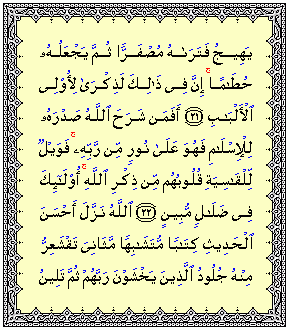 يَهِيجُ فَتَرَىٰهُ مُصْفَرًّا ثُمَّ يَجْعَلُهُۥ
حُطَٰمًا ۚ إِنَّ فِى ذَٰلِكَ لَذِكْرَىٰ لِأُو۟لِى
ٱلْأَلْبَٰبِ ﴿٢١﴾ أَفَمَن شَرَحَ ٱللَّهُ صَدْرَهُۥ
لِلْإِسْلَٰمِ فَهُوَ عَلَىٰ نُورٍ مِّن رَّبِّهِۦ ۚ فَوَيْلٌ
لِّلْقَٰسِيَةِ قُلُوبُهُم مِّن ذِكْرِ ٱللَّهِ ۚ أُو۟لَٰٓئِكَ
فِى ضَلَٰلٍ مُّبِينٍ ﴿٢٢﴾ ٱللَّهُ نَزَّلَ أَحْسَنَ
ٱلْحَدِيثِ كِتَٰبًا مُّتَشَٰبِهًا مَّثَانِىَ تَقْشَعِرُّ
مِنْهُ جُلُودُ ٱلَّذِينَ يَخْشَوْنَ رَبَّهُمْ ثُمَّ تَلِينُ